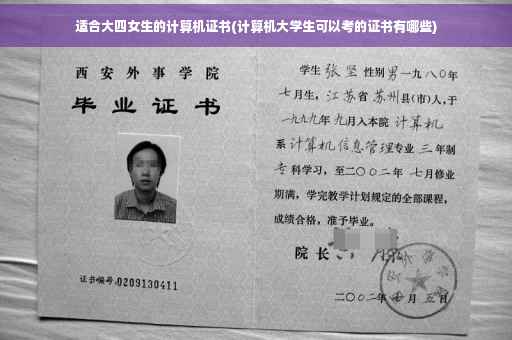 适合大四女生的计算机证书(计算机大学生可以考的证书有哪些)
西安外事学院
毕业证书
证书编号:0209130411
学生 张坚 性别 男 一九八〇年
七月生,江苏省 苏州县(市)人,于
一九九九年 九月入本院 计算机
系 计算机信息管理专业 三年制
专科学习,至二〇〇二年 七月修业
期满,学完教学计划规定的全部课程,
成绩合格,准予毕业。
院长
二〇〇二年 月 五日